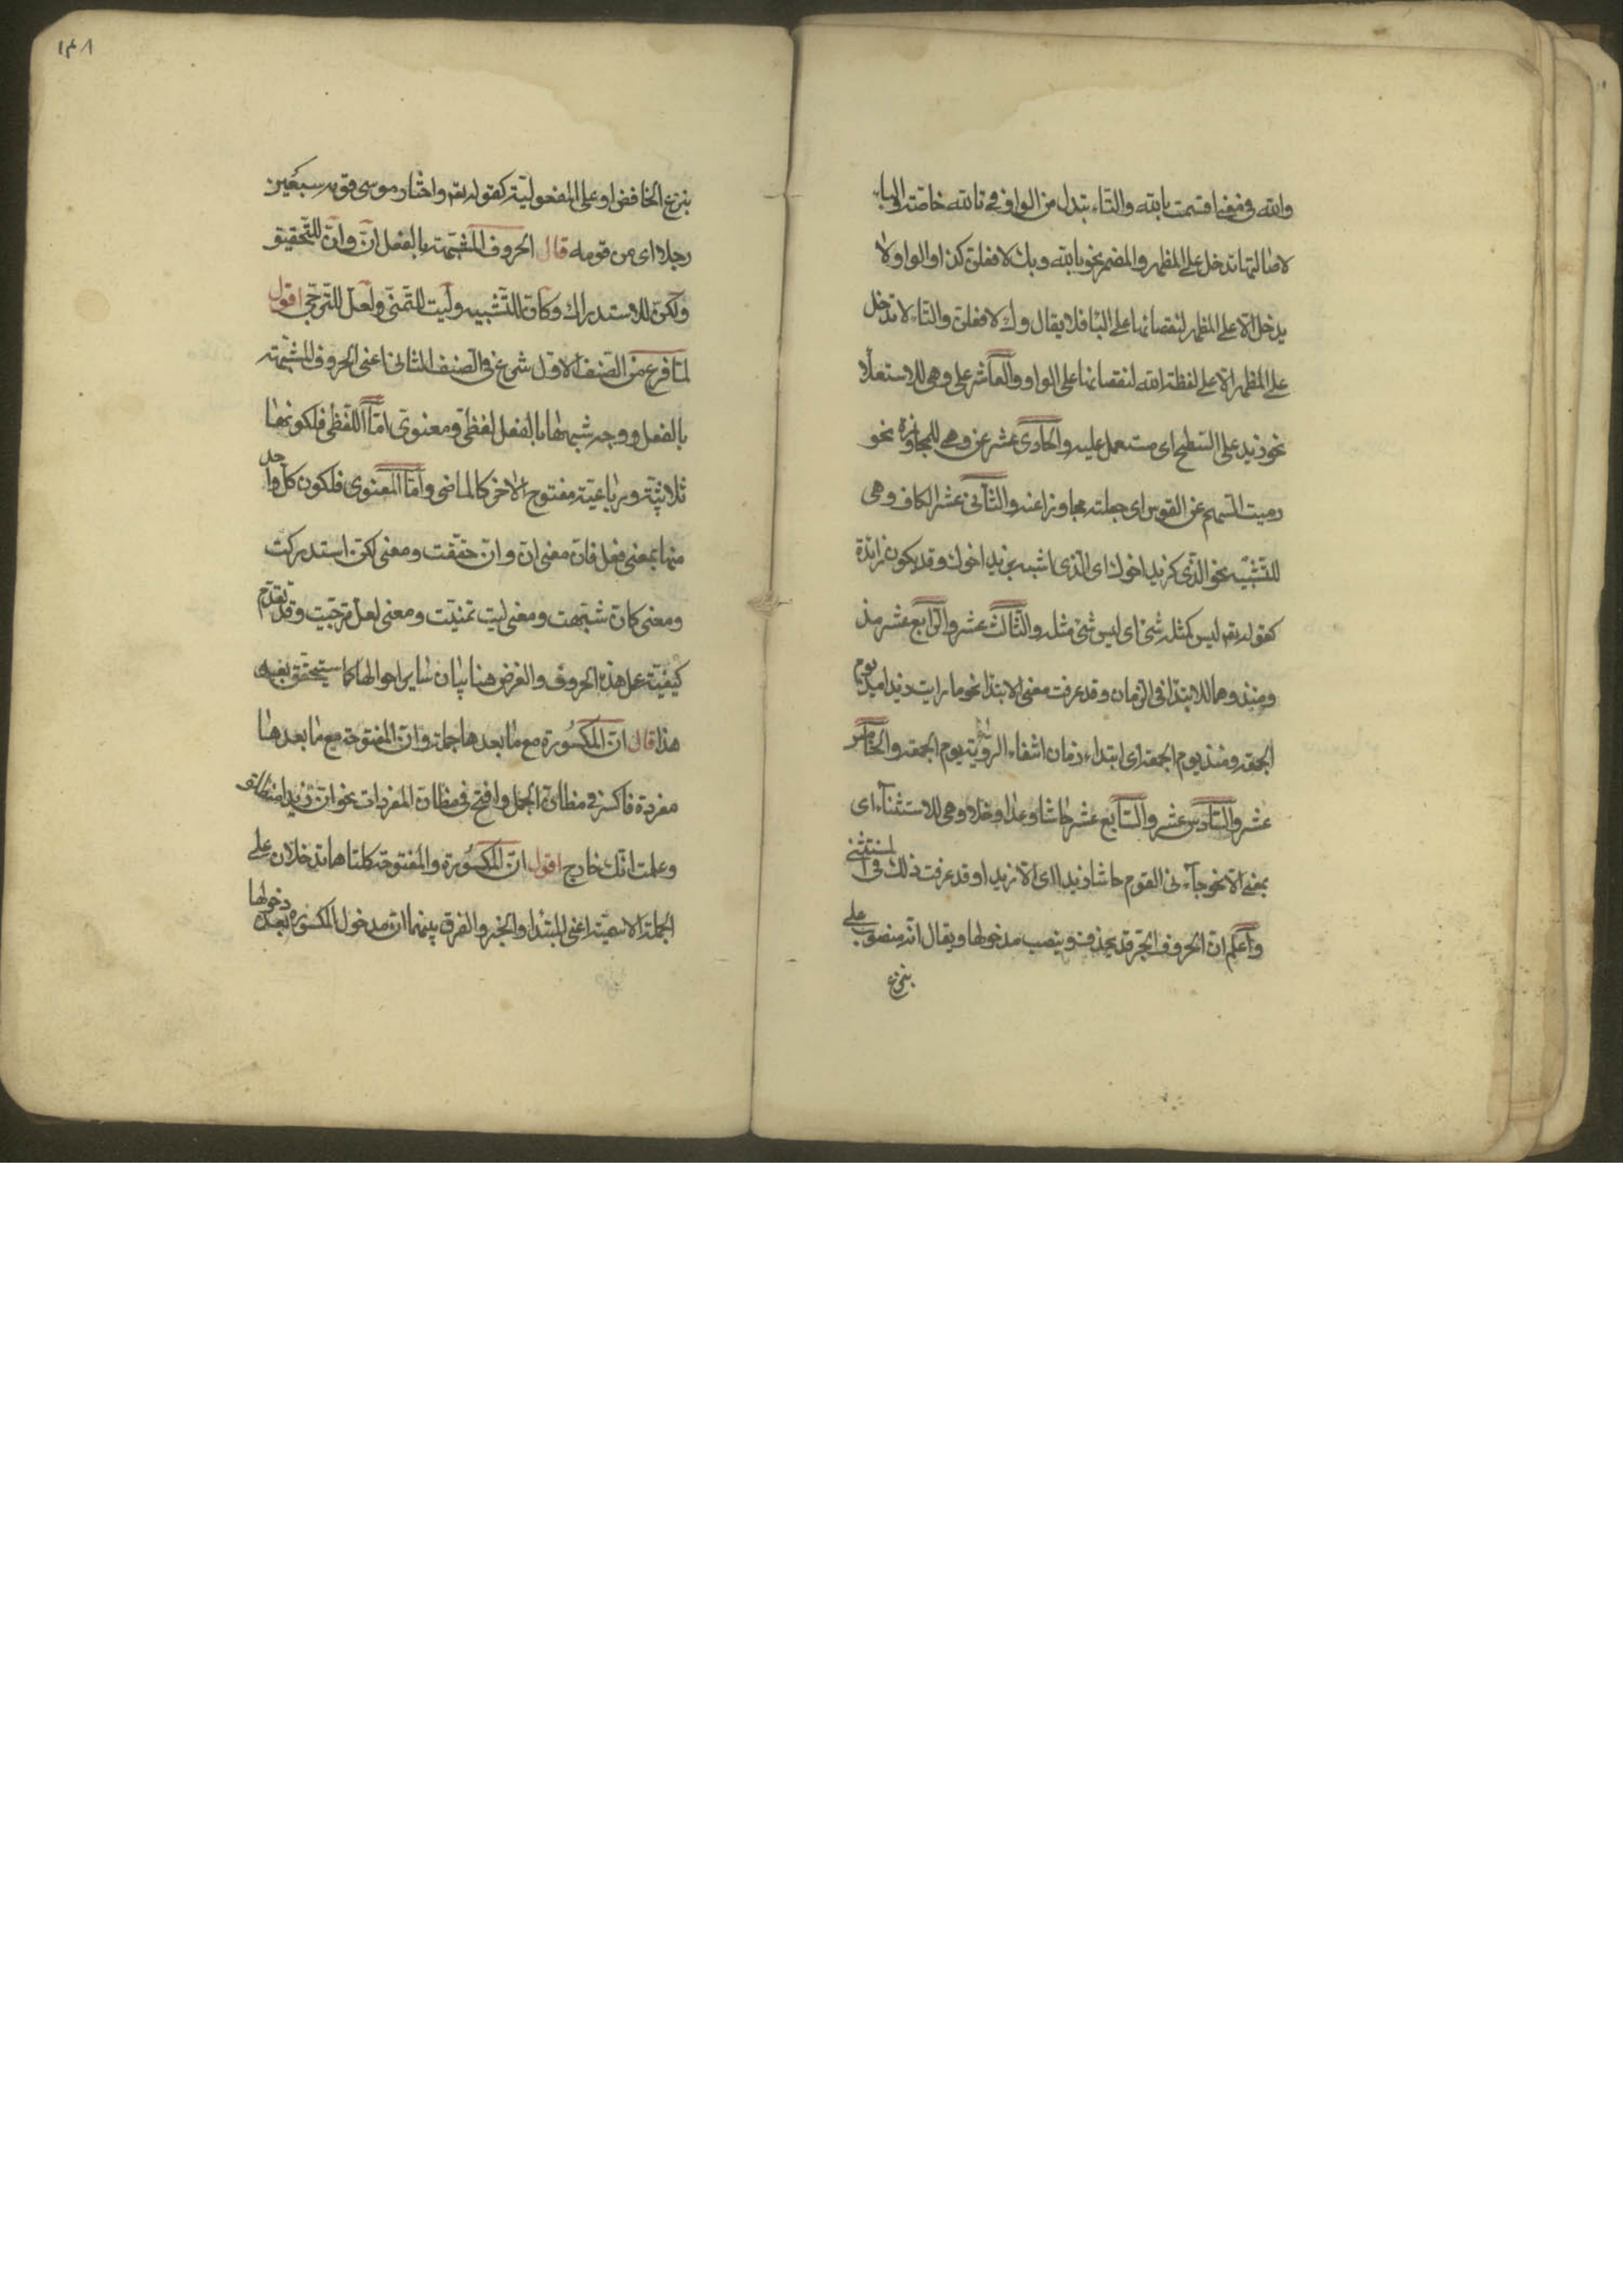 والله في معنى اقسمت بالله والتاء تبدل من الواو في تالله خاصة والباء
لاصالتها تدخل على المظهر والمضمر نحو بالله وبك لافعلن كذا والواو لا
يدخل الا على المظهر لنقصانها على الباء فلا يقال وك لافعلن والتاء لا تدخل
على المظهر الا على لفظة الله لنقصانها على الواو والعاشر على وهي للاستعلا
نحو زيد على السطح اى مستعمل عليه والحادى عشر عن وهي للمجاوزة نحو
رميت السهم عن القوس اى جعلته مجاوزا عنه والثانى عشر الكاف وهي
للتشبيه نحو الذى كزيد اخوك اى الذى اشبه بزيد اخوك وقد يكون زائدة
كقوله تعم ليس كمثله شئ اى ليس شئ مثله والثالث عشر والرابع عشر مذ
ومنذ وهما للابتدا فى الزمان وقد عرفت معنى الابتدا نحو ما رايت زيدا مذ يوم
الجمعة ومنذ يوم الجمعة اى ابتداء زمان انتفاء الروية يوم الجمعة والخامس
عشر والسادس عشر والسابع عشر حاشا وعدا وخلا وهى للاستثناء اى
بمعنى الا نحو جاءنى القوم حاشا زيد اى الا زيدا وقد عرفت ذلك فى المستثنى
واعلم ان الحروف الجر قد يحذف وينصب مدخولها ويقال انه منصوب على
بنزع
١٣٨
بنزع الخافض او على المفعولية كقوله تعم واختار موسى قومه سبعين
رجلا اى من قومه قال الحروف المشبهة بالفعل ان وان للتحقيق
ولكن للاستدراك وكان للتشبيه وليت للتمنى ولعل للترجى اقول
لما فرغ من الصنف الاول شرع فى الصنف الثانى اعنى الحروف المشبهة
بالفعل ووجه شبهها بالفعل لفظى ومعنوى اما اللفظى فلكونها
ثلاثية ورباعية مفتوح الاخر كالماضى واما المعنوى فلكون كل واحد
منها بمعنى فعل فان معنى ان وان حققت ومعنى لكن استدركت
ومعنى كان شبهت ومعنى ليت تمنيت ومعنى لعل ترجيت وقد تقدم
كيفية عمل هذه الحروف والغرض هنا بيان ساير احوالها كما ستحقق بعيد
هذا قال ان المكسورة مع ما بعدها جملة وان المفتوحة مع ما بعدها
مفردة فاكسر فى مظان الجمل وافتح فى مظان المفردات نحو ان زيدا منطلق
وعلمت انك خارج اقول ان المكسورة والمفتوحة كلتاهما تدخلان على
الجملة الاسمية اعنى المبتدا والخبر والفرق بينهما ان مدخول المكسورة بعد دخولها